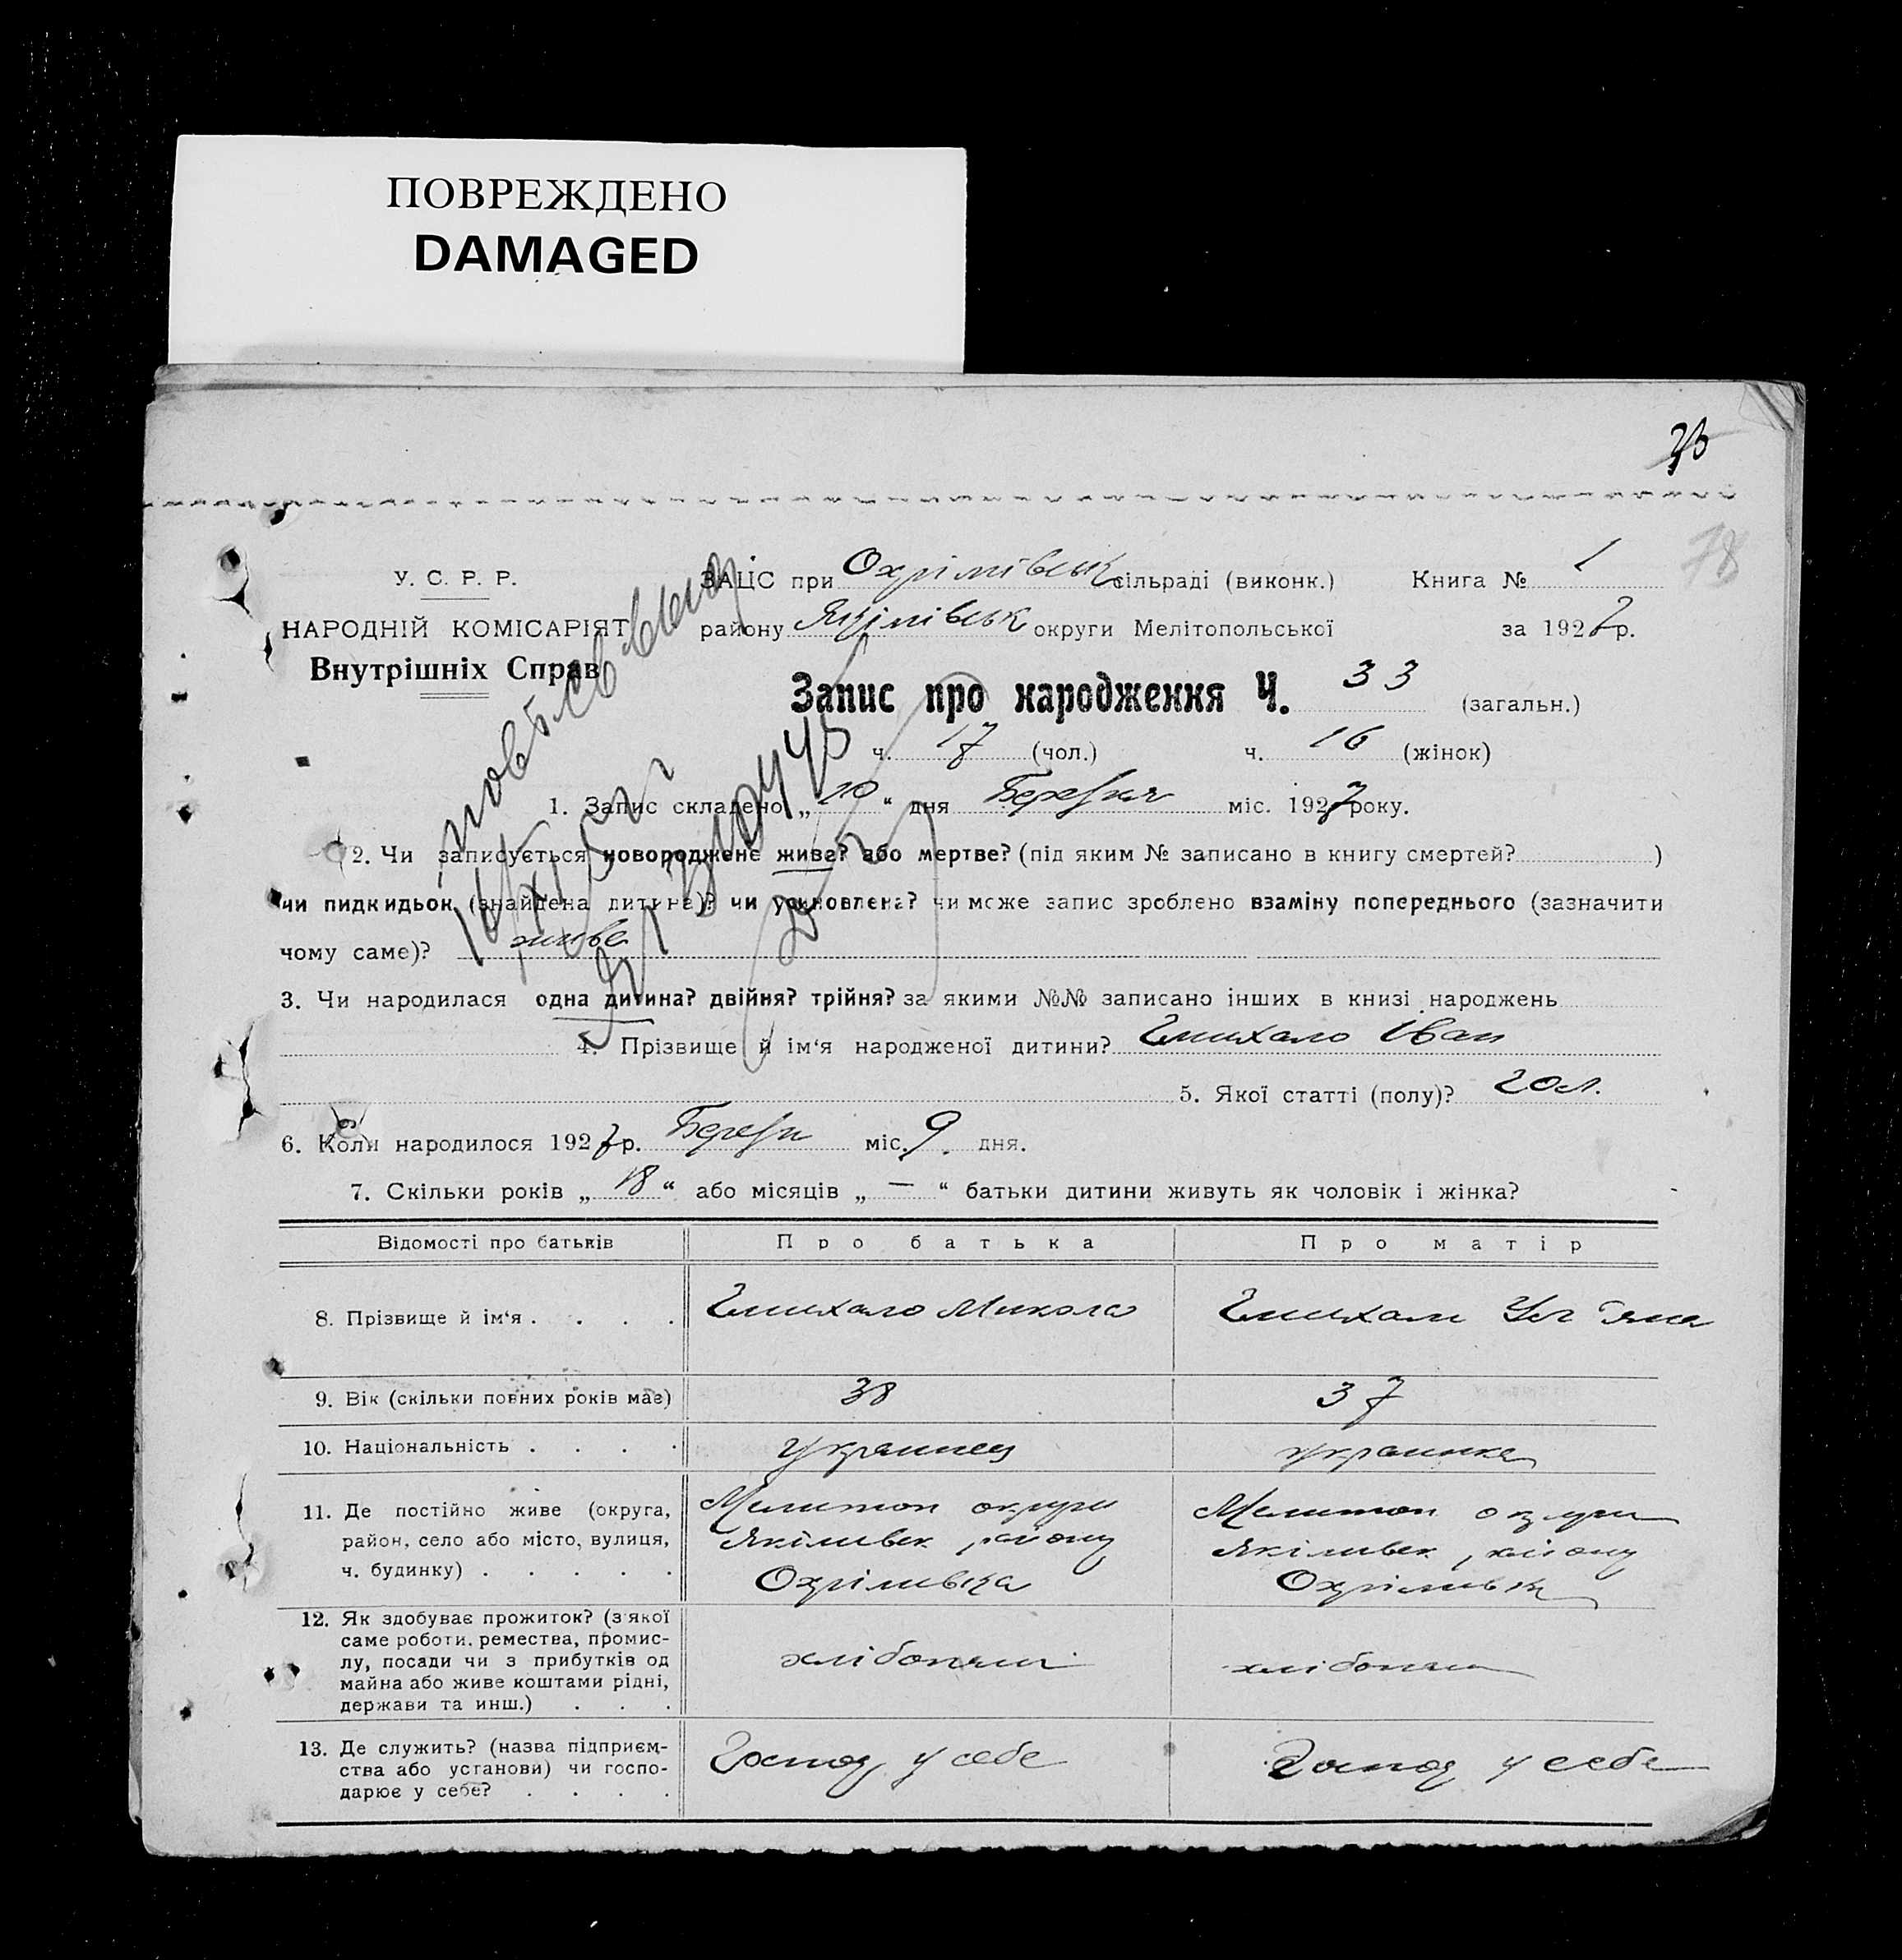 ПОВРЕЖДЕНО
DAMAGED
78
У. С. Р. Р.
НАРОДНІЙ КОМІСАРІЯТ
Внутрішніх Справ
ЗАЦС при Охрімівськ сільраді (виконк.) Книга № 1
району Якімівськ округи Мелітопольської за 1927 р.
Запис про народження Ч. 33 (загальн.)
ч. 17 (чол.) ч. 16 (жінок)
1. Запис складено „10“ дня Березня міс. 1927 року.
2. Чи записується новороджене живе? або мертве? (під яким № записано в книгу смертей? )
чи пидкидьок (знайдена дитина)? чи усиновлена? чи може запис зроблено взаміну попереднього (зазначити
чому саме)? живе
3. Чи народилася одна дитина? двійня? трійня? за якими №№ записано інших в книзі народжень
4. Прізвище й ім‘я народженої дитини? Іван
5. Якої статті (полу)? чол.
6. Коли народилося 1927 р. Березн міс. 9 дня.
7. Скільки років „18“ або місяців „—“ батьки дитини живуть як чоловік і жінка?
Відомості про батьків Про батька Про матір
8. Прізвище й ім‘я . . . . Микола
9. Вік (скільки повних років має) 38 37
10. Національність . . . . украинец украинка
11. Де постійно живе (округа, Мелитоп округи Мелитоп округи
район, село або місто, вулиця, Якимівск району Якімивск району
ч. будинку) . . . . . Охрімивка Охрімивка
12. Як здобуває прожиток? (з якої
саме роботи, ремества, промис-
лу, посади чи з прибутків од хлібопаш хлібопаш
майна або живе коштами рідні,
держави та инш.) . . .
13. Де служить? (назва підприєм- Господ у себе Господ у себе
ства або установи) чи госпо-
дарює у себе? . . . .